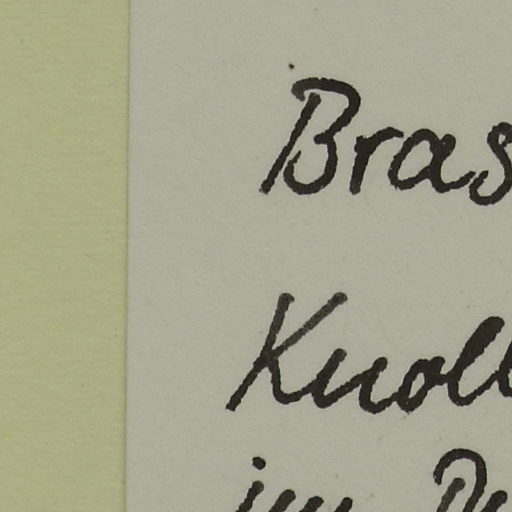 Bras
Knoll
im